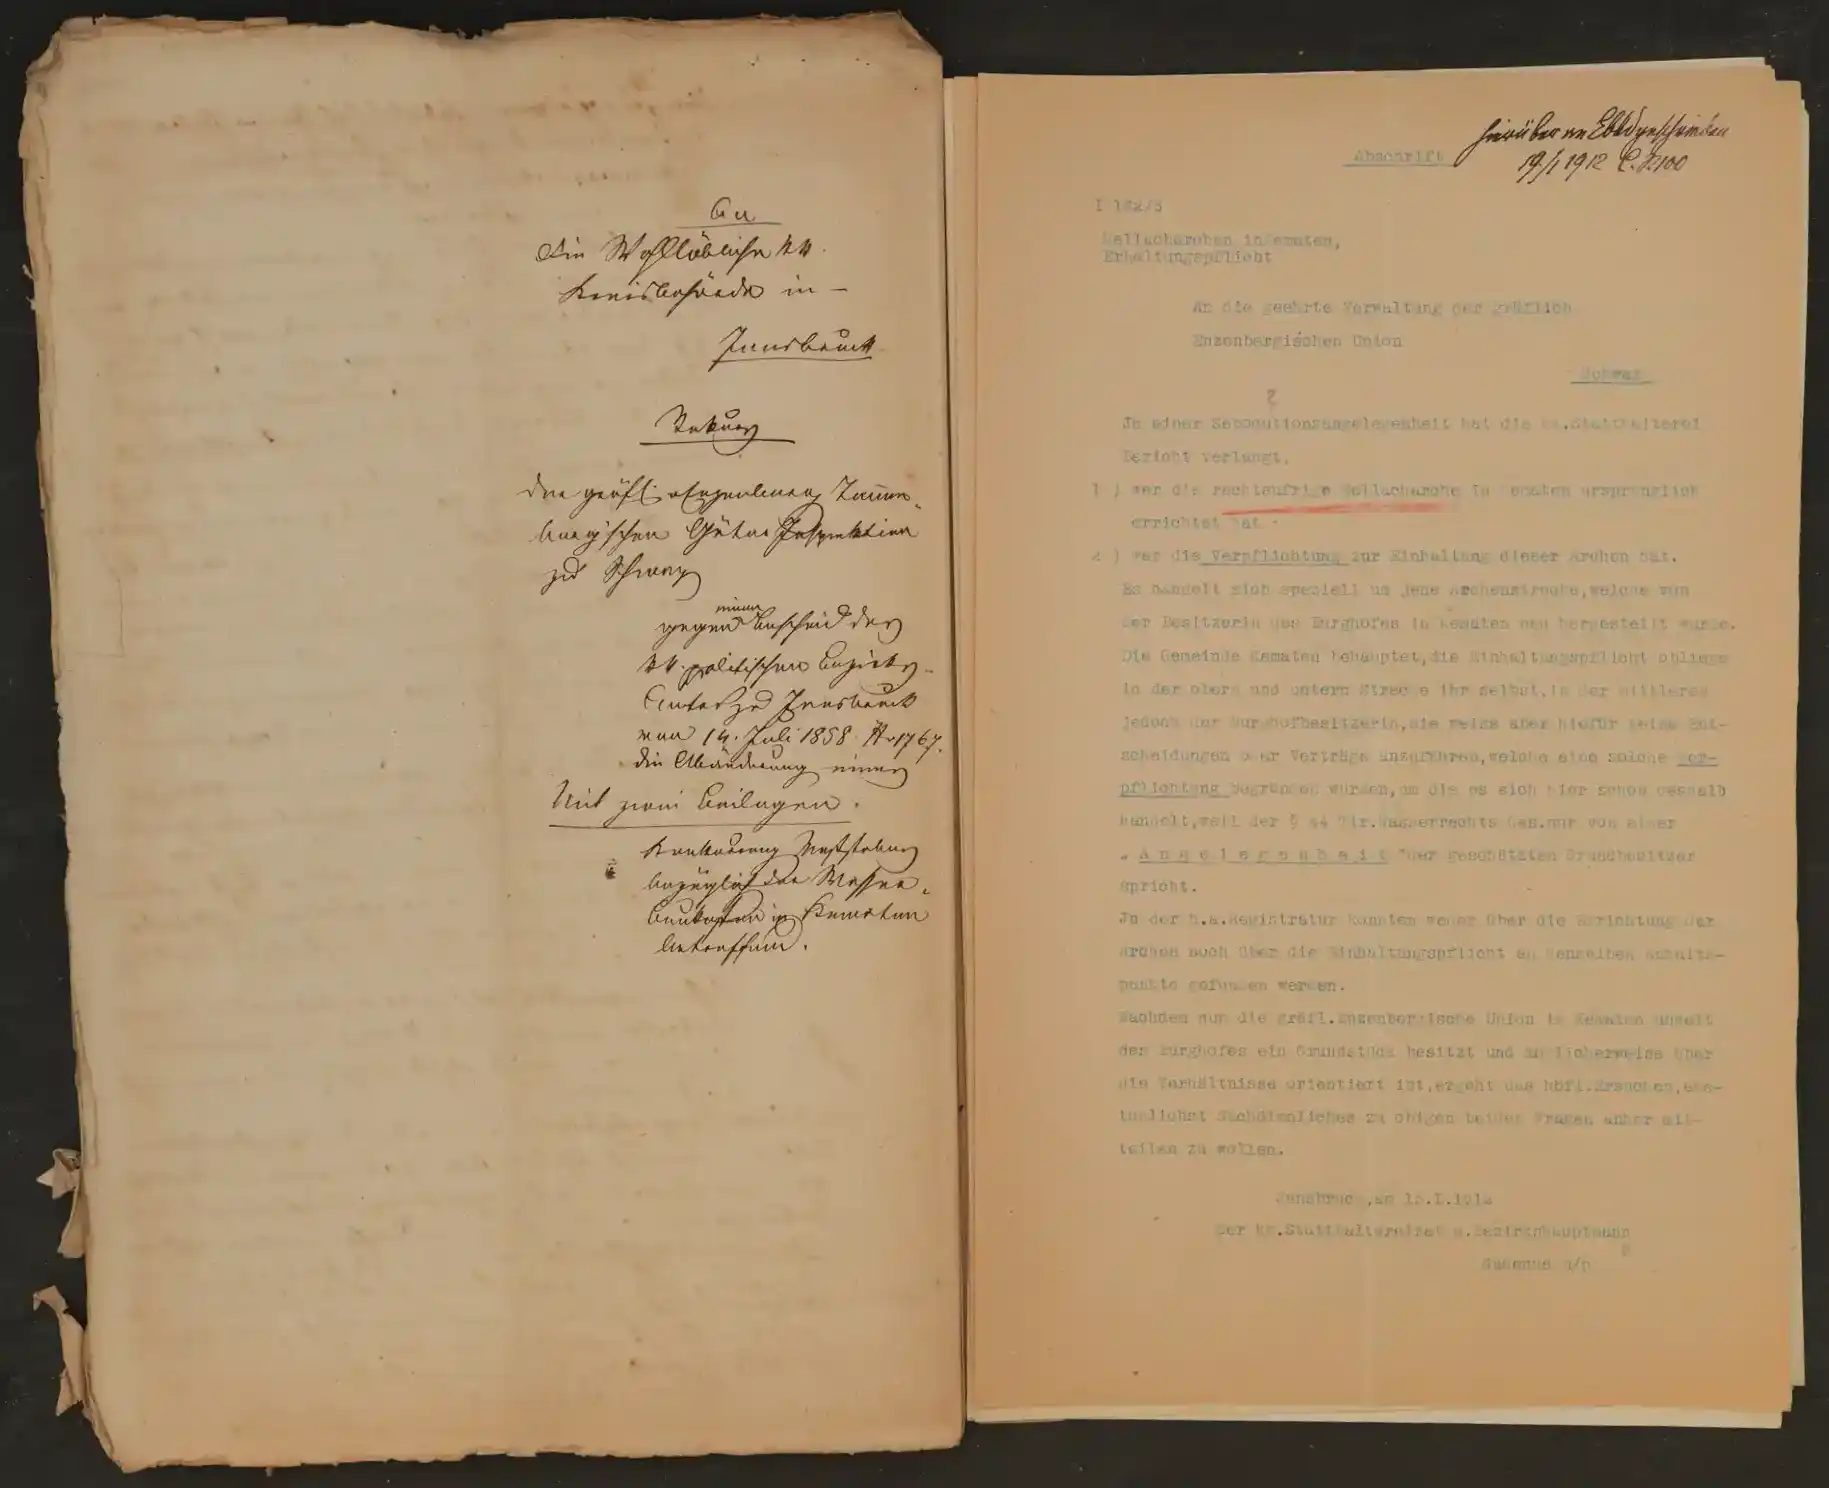 An
Die Wohllöbliche kk.
Kreisbehörde in –
Innsbruck
Rekurs
der gräfl. Enzenberg Tannen-
berg'schen Güter Inspektion
zu Schwaz
einen
gegen Bescheid des
kk. politischen Bezirks-
Amtes zu Innsbruck
vom 14. Juli 1858 Nr 1767.
die Abänderung einer
Mit zwei Beilagen.
Konkurrenz
bezüglich der Wasser-
baukosten in Kematen
betreffend.
hierüber an geschrieben
19/1 1912 E.N. 100
Abschrift
I 182/3
Mellacharchen in Kematen,
Erhaltungspflicht
An die geehrte Verwaltung der gräflich
Enzenbergischen Union
Schwaz
?
In einer angelegenheit hat die kk.Statthalterei
Bericht verlangt,
1 ) wer die rechtsufrige Mellacharche in Kematen ursprünglich
errichtet hat
2 ) wer die Verpflichtung zur Einhaltung dieser Archen hat.
Es handelt sich speziell um jene Archenstrecke,welche von
der Besitzerin des Burghofes in Kematen neu hergestellt wurde.
Die Gemeinde Kematen behauptet,die Einhaltungspflicht obliege
in der obern und untern Strecke ihr selbst,in der mittleren
jedoch der Burghofbesitzerin,sie weiss aber hiefür keine Ent-
scheidungen oder Verträge anzuführen,welche eine solche Ver-
pflichtung begründen würden,um die es sich hier schon deshalb
handelt,weil der § 44 Tir.Wasserrechts Ges.nur von einer
" A n g e l e g e n h e i t "der geschützten Grundbesitzer
spricht.
In der h.a.Registratur konnten weder über die Errichtung der
Archen noch über die Einhaltungspflicht an denselben Anhalts-
punkte gefunden werden.
Nachdem nun die gräfl.Enzenbergische Union in Kematen unweit
des Burghofes ein Grundstück besitzt und möglicherweise über
die Verhältnisse orientiert ist,ergeht das höfl.Ersuchen,ehe-
tunlichst Sachdienliches zu obigen beiden Fragen anher mit-
teilen zu wollen.
Innsbruck,am .I.1912
Der kk.Statthaltereirat u.Bezirkshauptmann
m/p